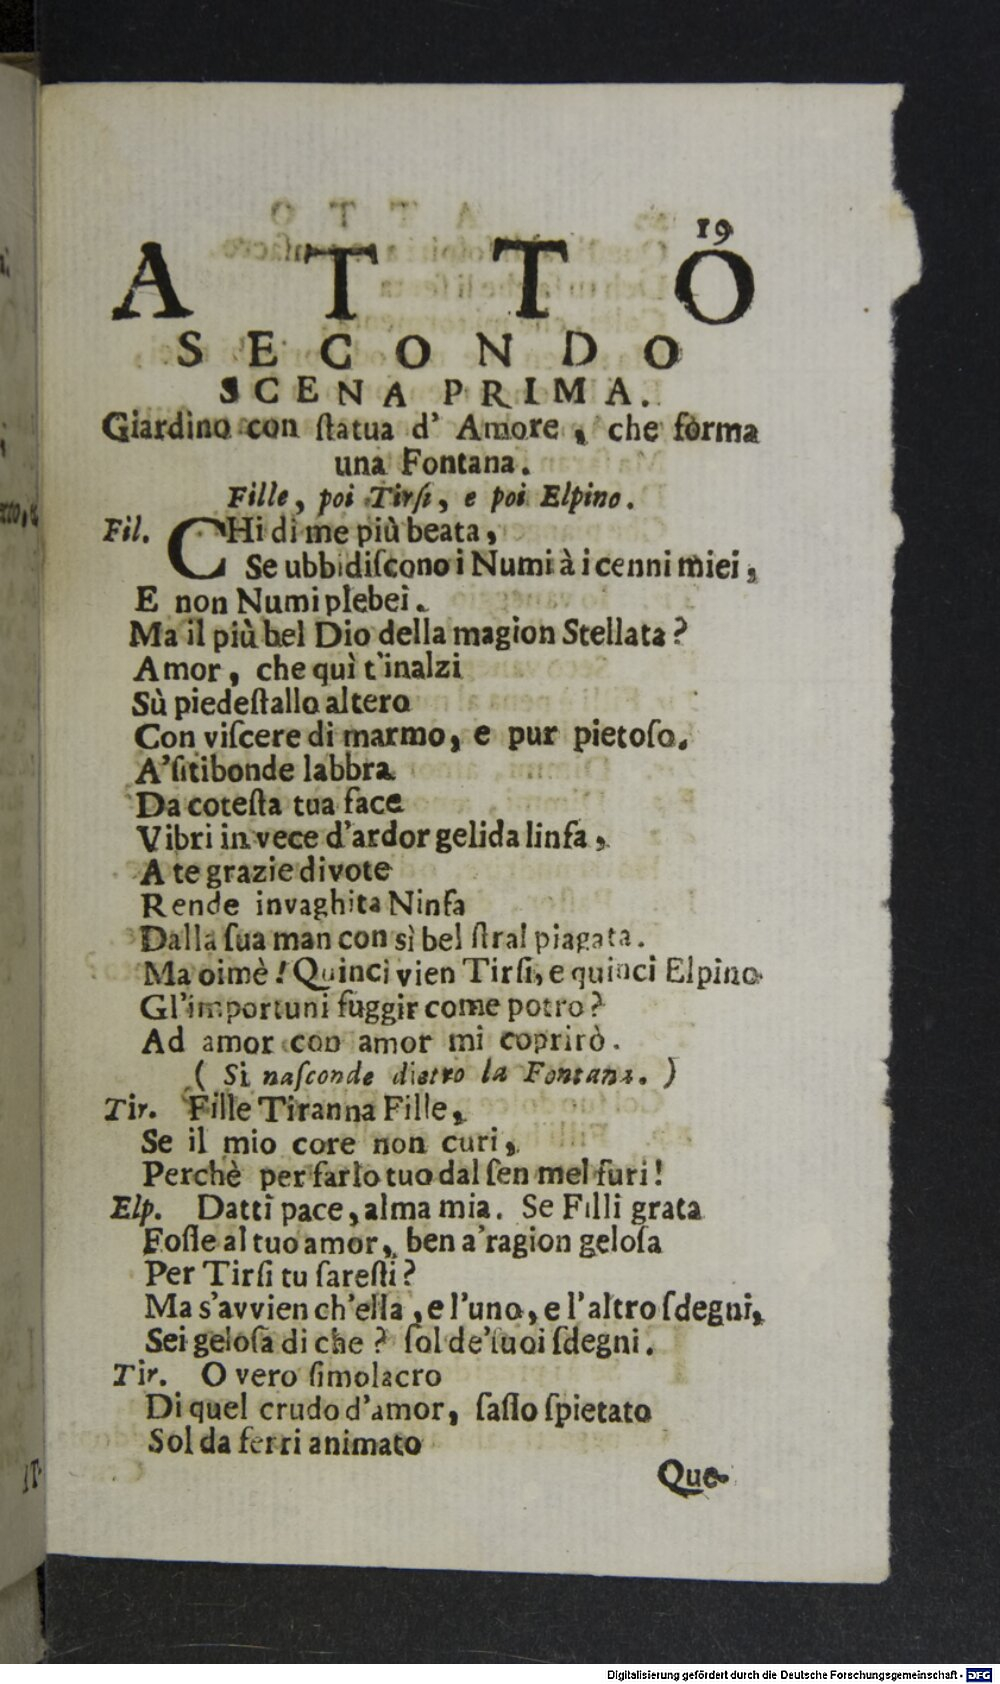 19
ATTO
SECONDO
SCENA PRIMA.
Giardino con ſtatua d' Amore, che forma
una Fontana.
Fille, poi Tirſi, e poi Elpino.
Fil. CHi di me più beata,
Se ubbidiſcono i Numi à i cenni miei,
E non Numi plebei.
Ma il più bel Dio della magion Stellata?
Amor, che quì t'inalzi
Sù piedeſtallo altero
Con viſcere di marmo, e pur pietoſo.
A'ſitibonde labbra
Da coteſta tua face
Vibri in vece d'ardor gelida linfa,
A te grazie divote
Rende invaghita Ninfa
Dalla ſua man con sì bel ſtral piagata.
Ma oimè! Quinci vien Tirſi, e quinci Elpino
Gl'importuni fuggir come potro?
Ad amor con amor mi coprirò.
( Si naſconde dietro la Fontana. )
Tir. Fille Tiranna Fille,
Se il mio core non curi,
Perchè per farlo tuo dal ſen mel furi!
Elp. Datti pace, alma mia. Se Filli grata
Foſſe al tuo amor, ben a'ragion geloſa
Per Tirſi tu ſareſti?
Ma s'avvien ch'ella, e l'uno, e l'altro ſdegni,
Sei geloſa di che? ſol de'ſuoi ſdegni.
Tir. O vero ſimolacro
Di quel crudo d'amor, ſaſſo ſpietato
Sol da ferri animato
Que-
Digitalisierung gefördert durch die Deutsche Forschungsgemeinschaft - DFG